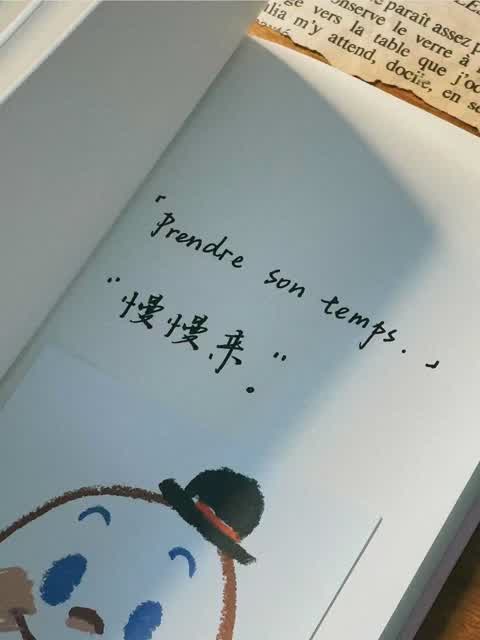 paraît assez p
onserve le verre à
vers la table que j'oc
m'y attend, docile, en se
「Prendre son temps.」
"慢慢来。"